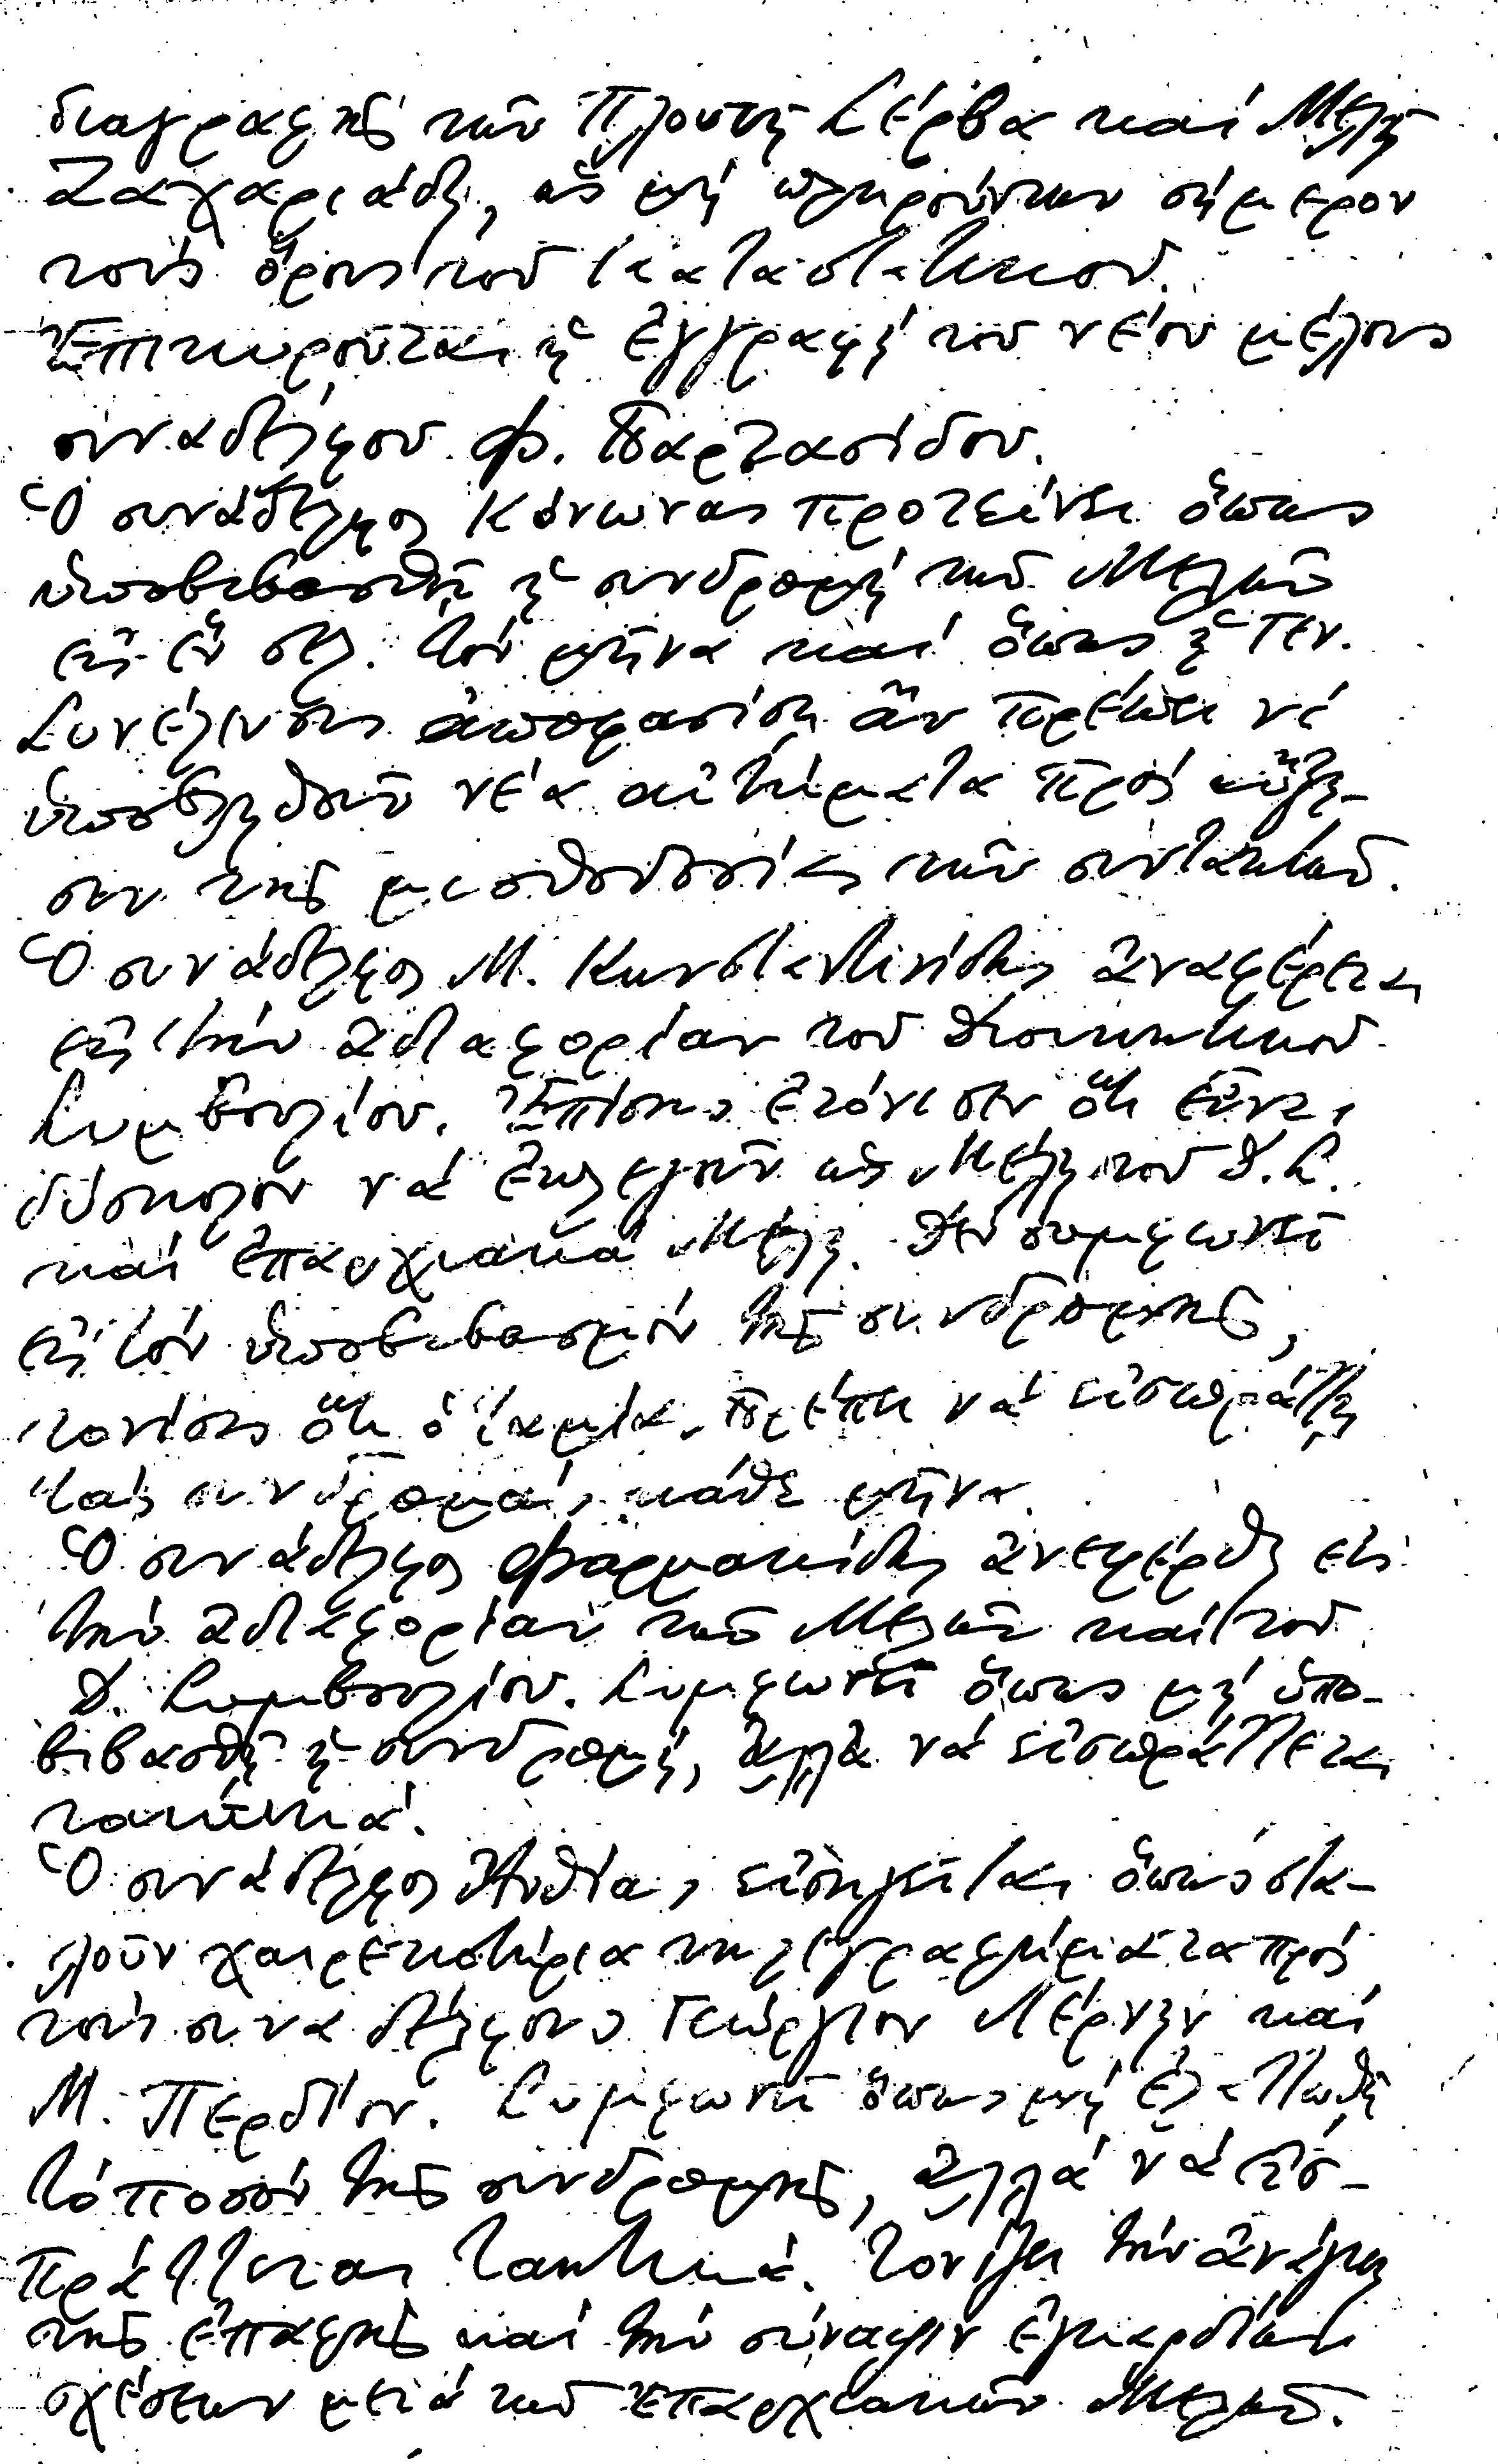 διαγραφῆς τῶν Πλουτῆ Σέρβα καί Μέλη
Ζαχαριάδη, ὡς μή πληρούντων σήμερον
τούς ὅρους τοῦ Καταστατικοῦ.
Ἐπικυροῦται ἡ ἐγγραφή τοῦ νέου μέλους
συναδέλφου Φ. Παρτασίδου.
Ὁ συνάδελφος Κόνωνας προτείνει ὅπως
ὑποβιβασθῇ ἡ συνδρομή τῶν Μελῶν
εἰς ἕν σελ. τόν μῆνα καί ὅπως ἡ Γεν.
Συνέλευσις ἀποφασίσῃ ἄν πρέπει νά
ὑποβληθοῦν νέα αἰτήματα πρός αὔξη-
σιν τῆς μισθοδοσίας τῶν συντακτῶν.
Ὁ συνάδελφος Μ. Κωνσταντινίδης ἀναφέρεται
εἰς τήν ἀδιαφορίαν τοῦ Διοικητικοῦ
Συμβουλίου. Ἐπίσης ἐτόνισεν ὅτι εἶναι
δύσκολον νά ἐκλεγοῦν ὡς Μέλη τοῦ Δ.Σ.
καί ἐπαρχιακά Μέλη. Δέν συμφωνεῖ
εἰς τόν ὑποβιβασμόν τῆς συνδρομῆς,
τονίσας ὅτι ὁ ταμίας πρέπει νά εἰσπράττῃ
τάς συνδρομάς κάθε μῆνα.
Ὁ συνάδελφος Φαρμακίδης ἀνεφέρθη εἰς
τήν ἀδιαφορίαν τῶν Μελῶν καί τοῦ
Δ. Συμβουλίου. Συμφωνεῖ ὅπως μή ὑπο-
βιβασθῇ ἡ συνδρομή, ἀλλά νά εἰσπράττεται
τακτικά.
Ὁ συνάδελφος Πυθίας εἰσηγεῖται ὅπως στα-
λοῦν χαιρετιστήρια τηλεγραφήματα πρός
τούς συναδέλφους Γεώργιον Λέρνην καί
Μ. Περδίον. Συμφωνεῖ ὅπως μή ἐλαττωθῇ
τό ποσόν τῆς συνδρομῆς, ἀλλά νά εἰσ-
πράττεται τακτικά. Τονίζει τήν ἀνάγκη
τῆς ἐπαφῆς καί τήν σύναψιν ἐγκαρδίων
σχέσεων μετά τῶν Ἐπαρχιακῶν Μελῶν.